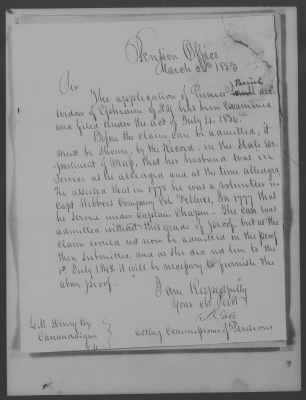 Pension Office
March 28th 1853
Sir
The application of Eunice Parrish
widow of Ephraim of N.Y. has been examined
and filed under the act of July 4, 1836.
Before the claim can be admitted, it
must be shown, by the Record, in the State De-
partment of Mass, that her husband was in
service as she alleged and at the time alleged,
He asserted that in 1776 he was a volunteer in
Capt Webbers Company Col. Fellows, In 1777 that
he served under Captain Chapin. The case was
admitted without this grade of proof, but as the
claim would not now be admitted on the proof
then submitted, and as she did not live to the
1st July 1848 it will be necessary to furnish the
above proof.
I am Respectfully
Your obt Servt
Acting Commissioner of Pensions
Esq
Canandaigua